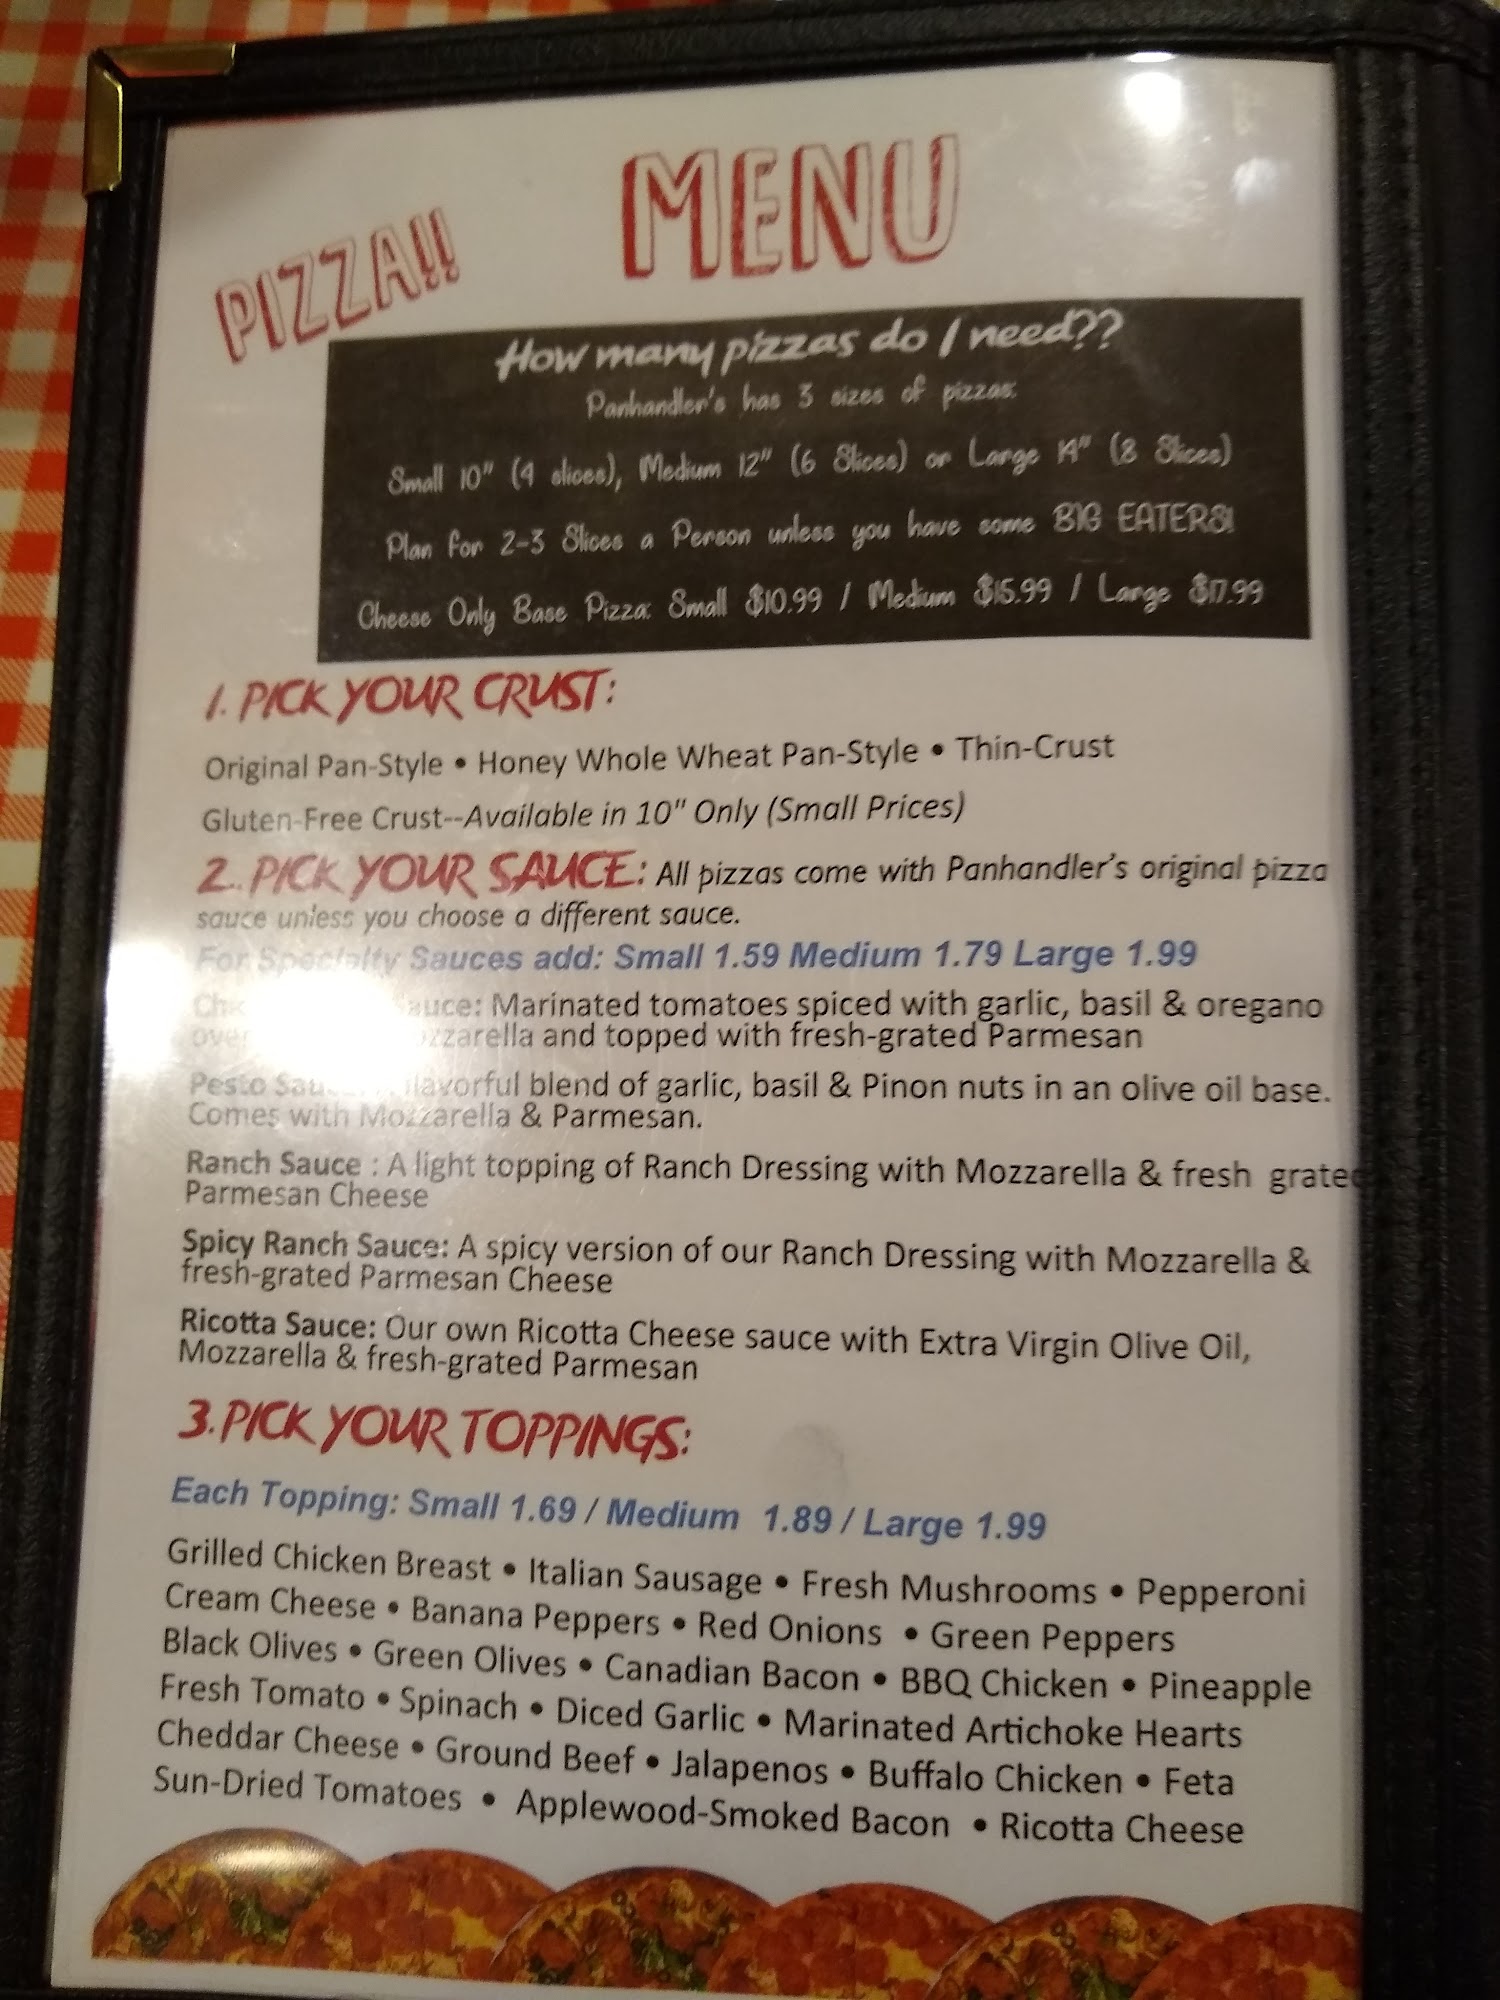 MENU
PIZZA!!
How many pizzas do I need??
Panhandler's has 3 sizes of pizzas:
Small 10" (4 slices), Medium 12" (6 Slices) or Large 14" (8 Slices)
Plan for 2-3 Slices a Person unless you have some BIG EATERS!
Cheese Only Base Pizza: Small $10.99 / Medium $15.99 / Large $17.99
1. PICK YOUR CRUST:
Original Pan-Style • Honey Whole Wheat Pan-Style • Thin-Crust
Gluten-Free Crust--Available in 10" Only (Small Prices)
2. PICK YOUR SAUCE: All pizzas come with Panhandler's original pizza
sauce unless you choose a different sauce.
For Specialty Sauces add: Small 1.59 Medium 1.79 Large 1.99
Marinated tomatoes spiced with garlic, basil & oregano
and topped with fresh-grated Parmesan
Pesto flavorful blend of garlic, basil & Pinon nuts in an olive oil base.
Comes with Mozzarella & Parmesan.
Ranch Sauce : A light topping of Ranch Dressing with Mozzarella & fresh grated
Parmesan Cheese
Spicy Ranch Sauce: A spicy version of our Ranch Dressing with Mozzarella &
fresh-grated Parmesan Cheese
Ricotta Sauce: Our own Ricotta Cheese sauce with Extra Virgin Olive Oil,
Mozzarella & fresh-grated Parmesan
3. PICK YOUR TOPPINGS:
Each Topping: Small 1.69 / Medium 1.89 / Large 1.99
Grilled Chicken Breast • Italian Sausage • Fresh Mushrooms • Pepperoni
Cream Cheese • Banana Peppers • Red Onions • Green Peppers
Black Olives • Green Olives • Canadian Bacon • BBQ Chicken • Pineapple
Fresh Tomato • Spinach • Diced Garlic • Marinated Artichoke Hearts
Cheddar Cheese • Ground Beef • Jalapenos • Buffalo Chicken • Feta
Sun-Dried Tomatoes • Applewood-Smoked Bacon • Ricotta Cheese